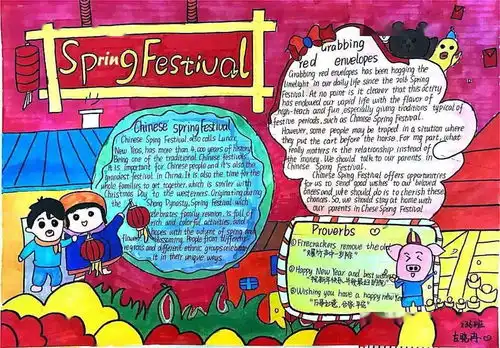 Spring Festival
Chinese spring festival
Chinese Spring Festival, also called Lunar
New Year, has more than 4,00 years of history
Being one of the traditional Chinese festivals,
it is important for Chinese people and it's also the
grandest festival in China. It is also the time for the
whole families to get together, which is similar with
Christmas Day to the westeners. Originating during
the Sheng Dynasty, Spring Festival
celebrates family reunion, is full of
rich and colorful activities, and
hopes with the advent of spring and
flowers blossoming. People from different
regions and different ethnic groups celebrate
it in their unique ways.
Grabbing
red envelopes
Grabbing red envelopes has been hogging the
limelight in our daily life since the 2018 Spring
Festival. At no point is it clearer that this activity
has endowed our rapid life with the flavor of
high-teach and fun, especially giving traditions typical of
festive periods, such as Chinese Spring Festival.
However, some people may be traped in a situation where
they put the cart before the horse. For my part, what
really matters is the relationship instead of
the money. We should talk to our parents in
Chinese Spring Festival.
Chinese Spring Festival offers opportunities
for us to send good wishes to our beloved
ones and we should do is to cherish these
chances. So, we should stay at home with
our parents in Chese Spring Festival.
Proverbs
①Firecrackers remove the old
"爆竹声中一岁除"
②Happy New Year and best wishes
③Wishing you have a happy new year